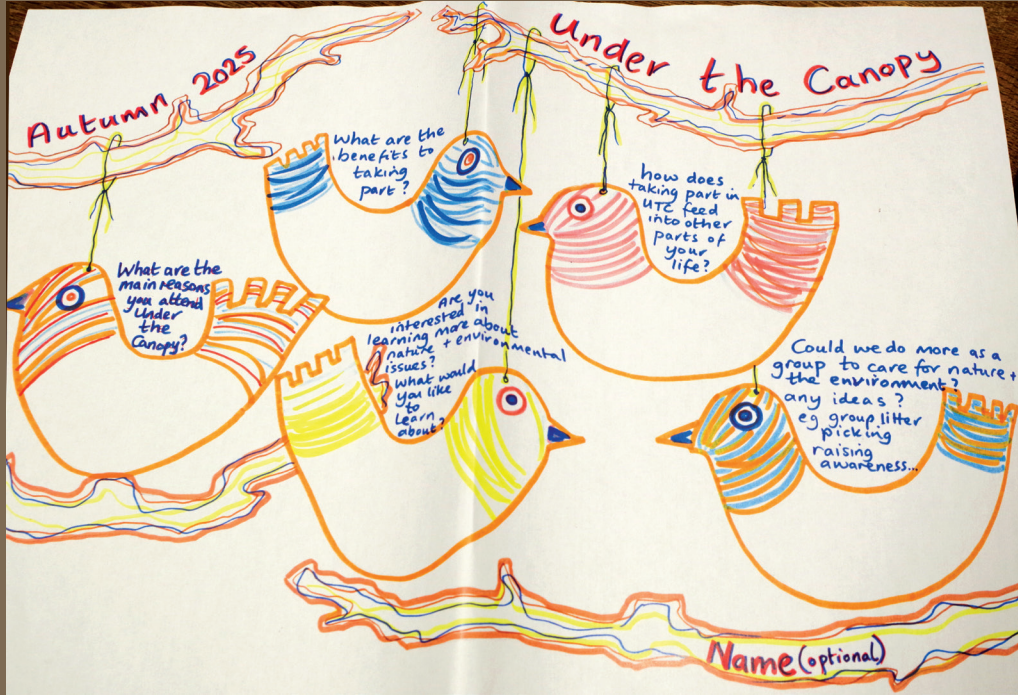 Autumn 2025
Under the Canopy
What are the
benefits to
taking
part?
how does
taking part in
UTC feed
into other
parts of
your
life?
What are the
main reasons
you attend
Under
the
Canopy?
Are you
interested in
learning more about
nature + environmental
issues?
What would
you like
to
learn
about?
Could we do more as a
group to care for nature +
the environment?
any ideas?
eg group litter
picking
raising
awareness...
Name (optional)